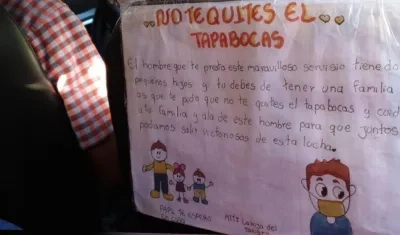 NO TE QUITES EL
TAPABOCAS
El hombre que te presta este maravilloso servicio tiene do
pequeños hijos y tu debes de tener una familia
as que te pido que no te quites el tapabocas y cuid
a tu familia y a la de este hombre para que juntos
podamos salir victoriosos de esta lucha.
PAPÁ TE ESPERO